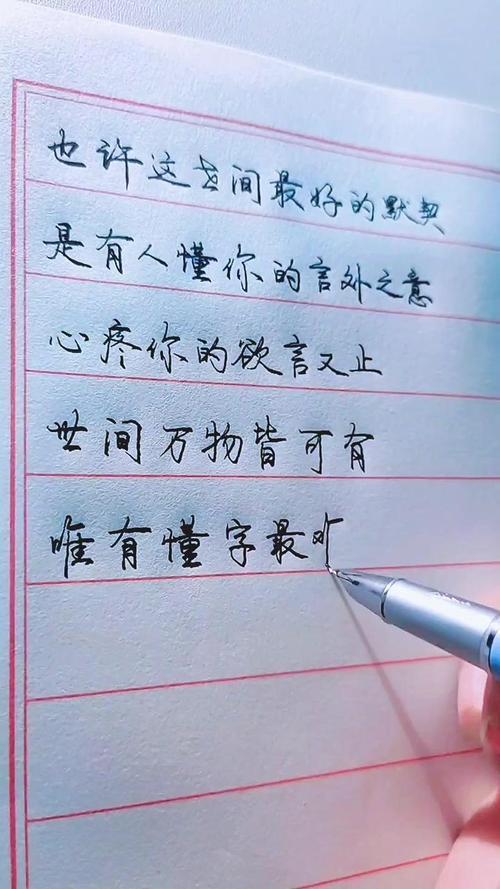 也许这世间最好的默契
是有人懂你的言外之意
心疼你的欲言又止
世间万物皆可有
唯有懂字最